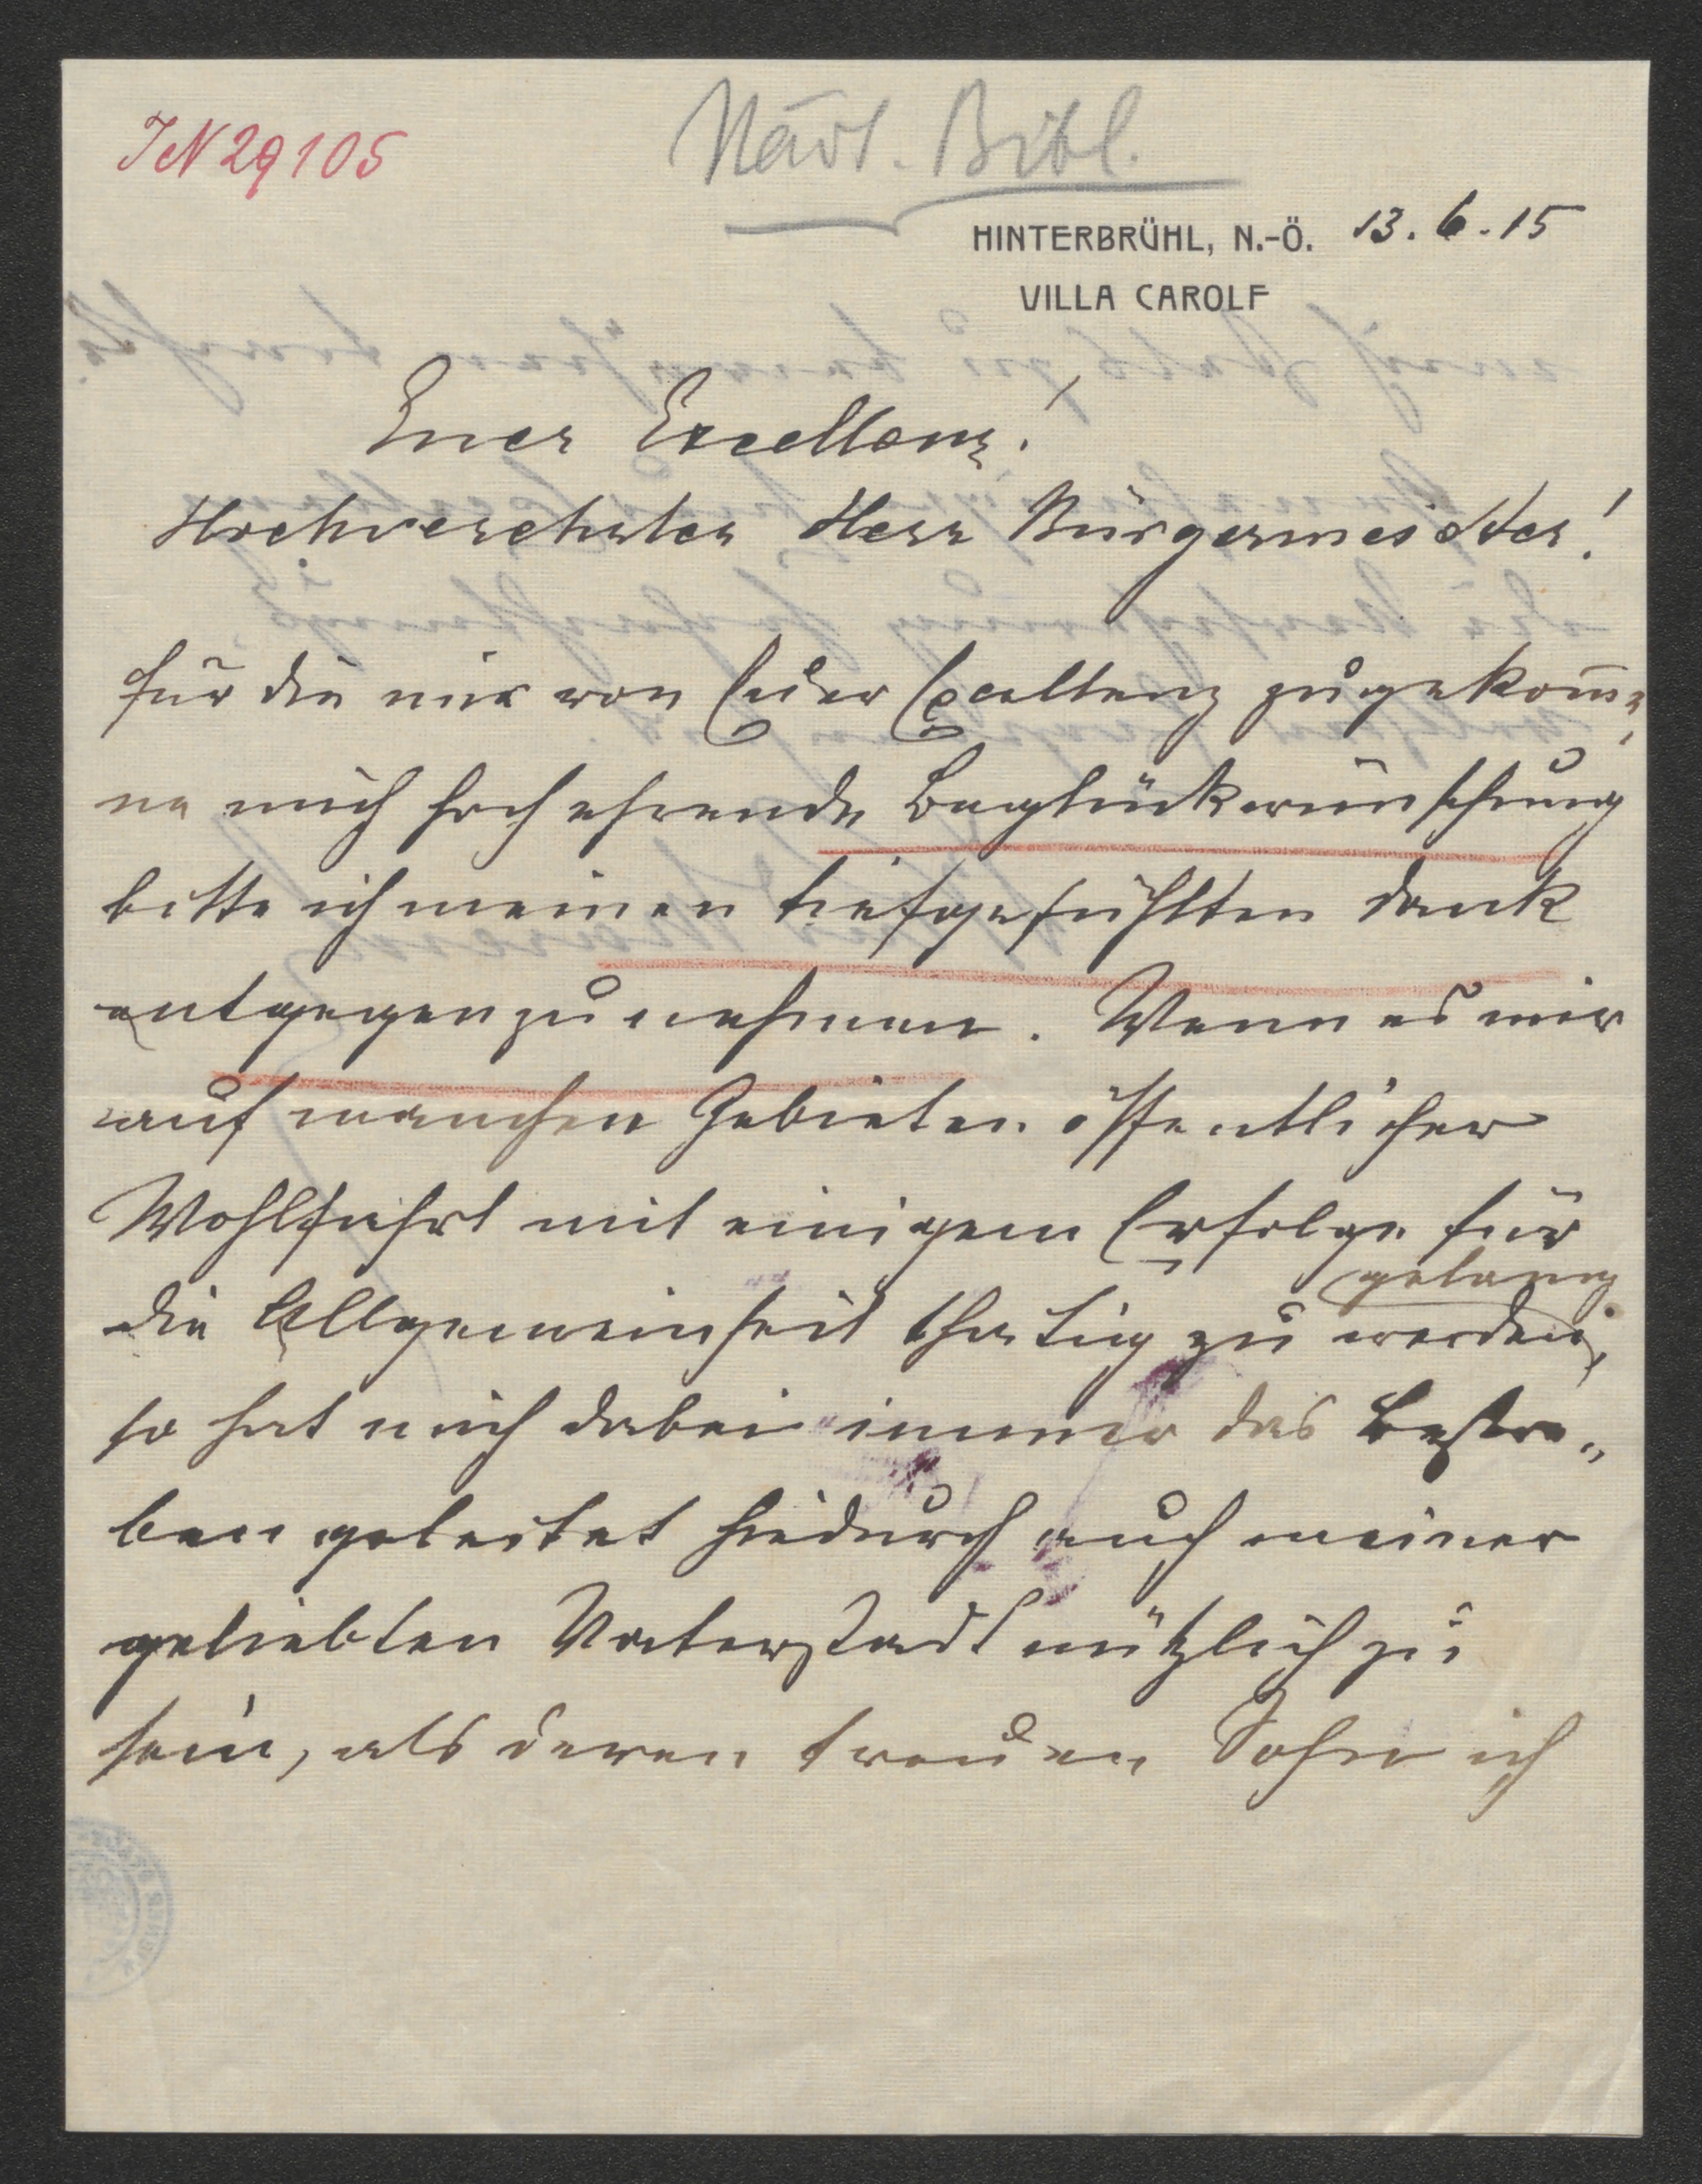 IN 29105
Städt. Bibl.
HINTERBRÜHL, N.-Ö. 13.6.15
VILLA CAROLF
Euer Excellenz!
Hochverehrter Herr Bürgermeister!
für die mir von Euer Excellenz zugekom̅e¬
ne mich hochehrende Beglückwünschung
bitte ich meinen tiefgefühlten Dank
entgegenzunehmen. Wenn es mir
auf manchen Gebieten öffentlicher
Wohlfahrt mit einigem Erfolge für
gelang
die Allgemeinheit thatig zu werden,
so hat mich dabei immer das Bestre„
ben geleitet hiedurch auch meiner
geliebten Vaterstadt nützlich zu
sein, als deren treuen Sohn ich